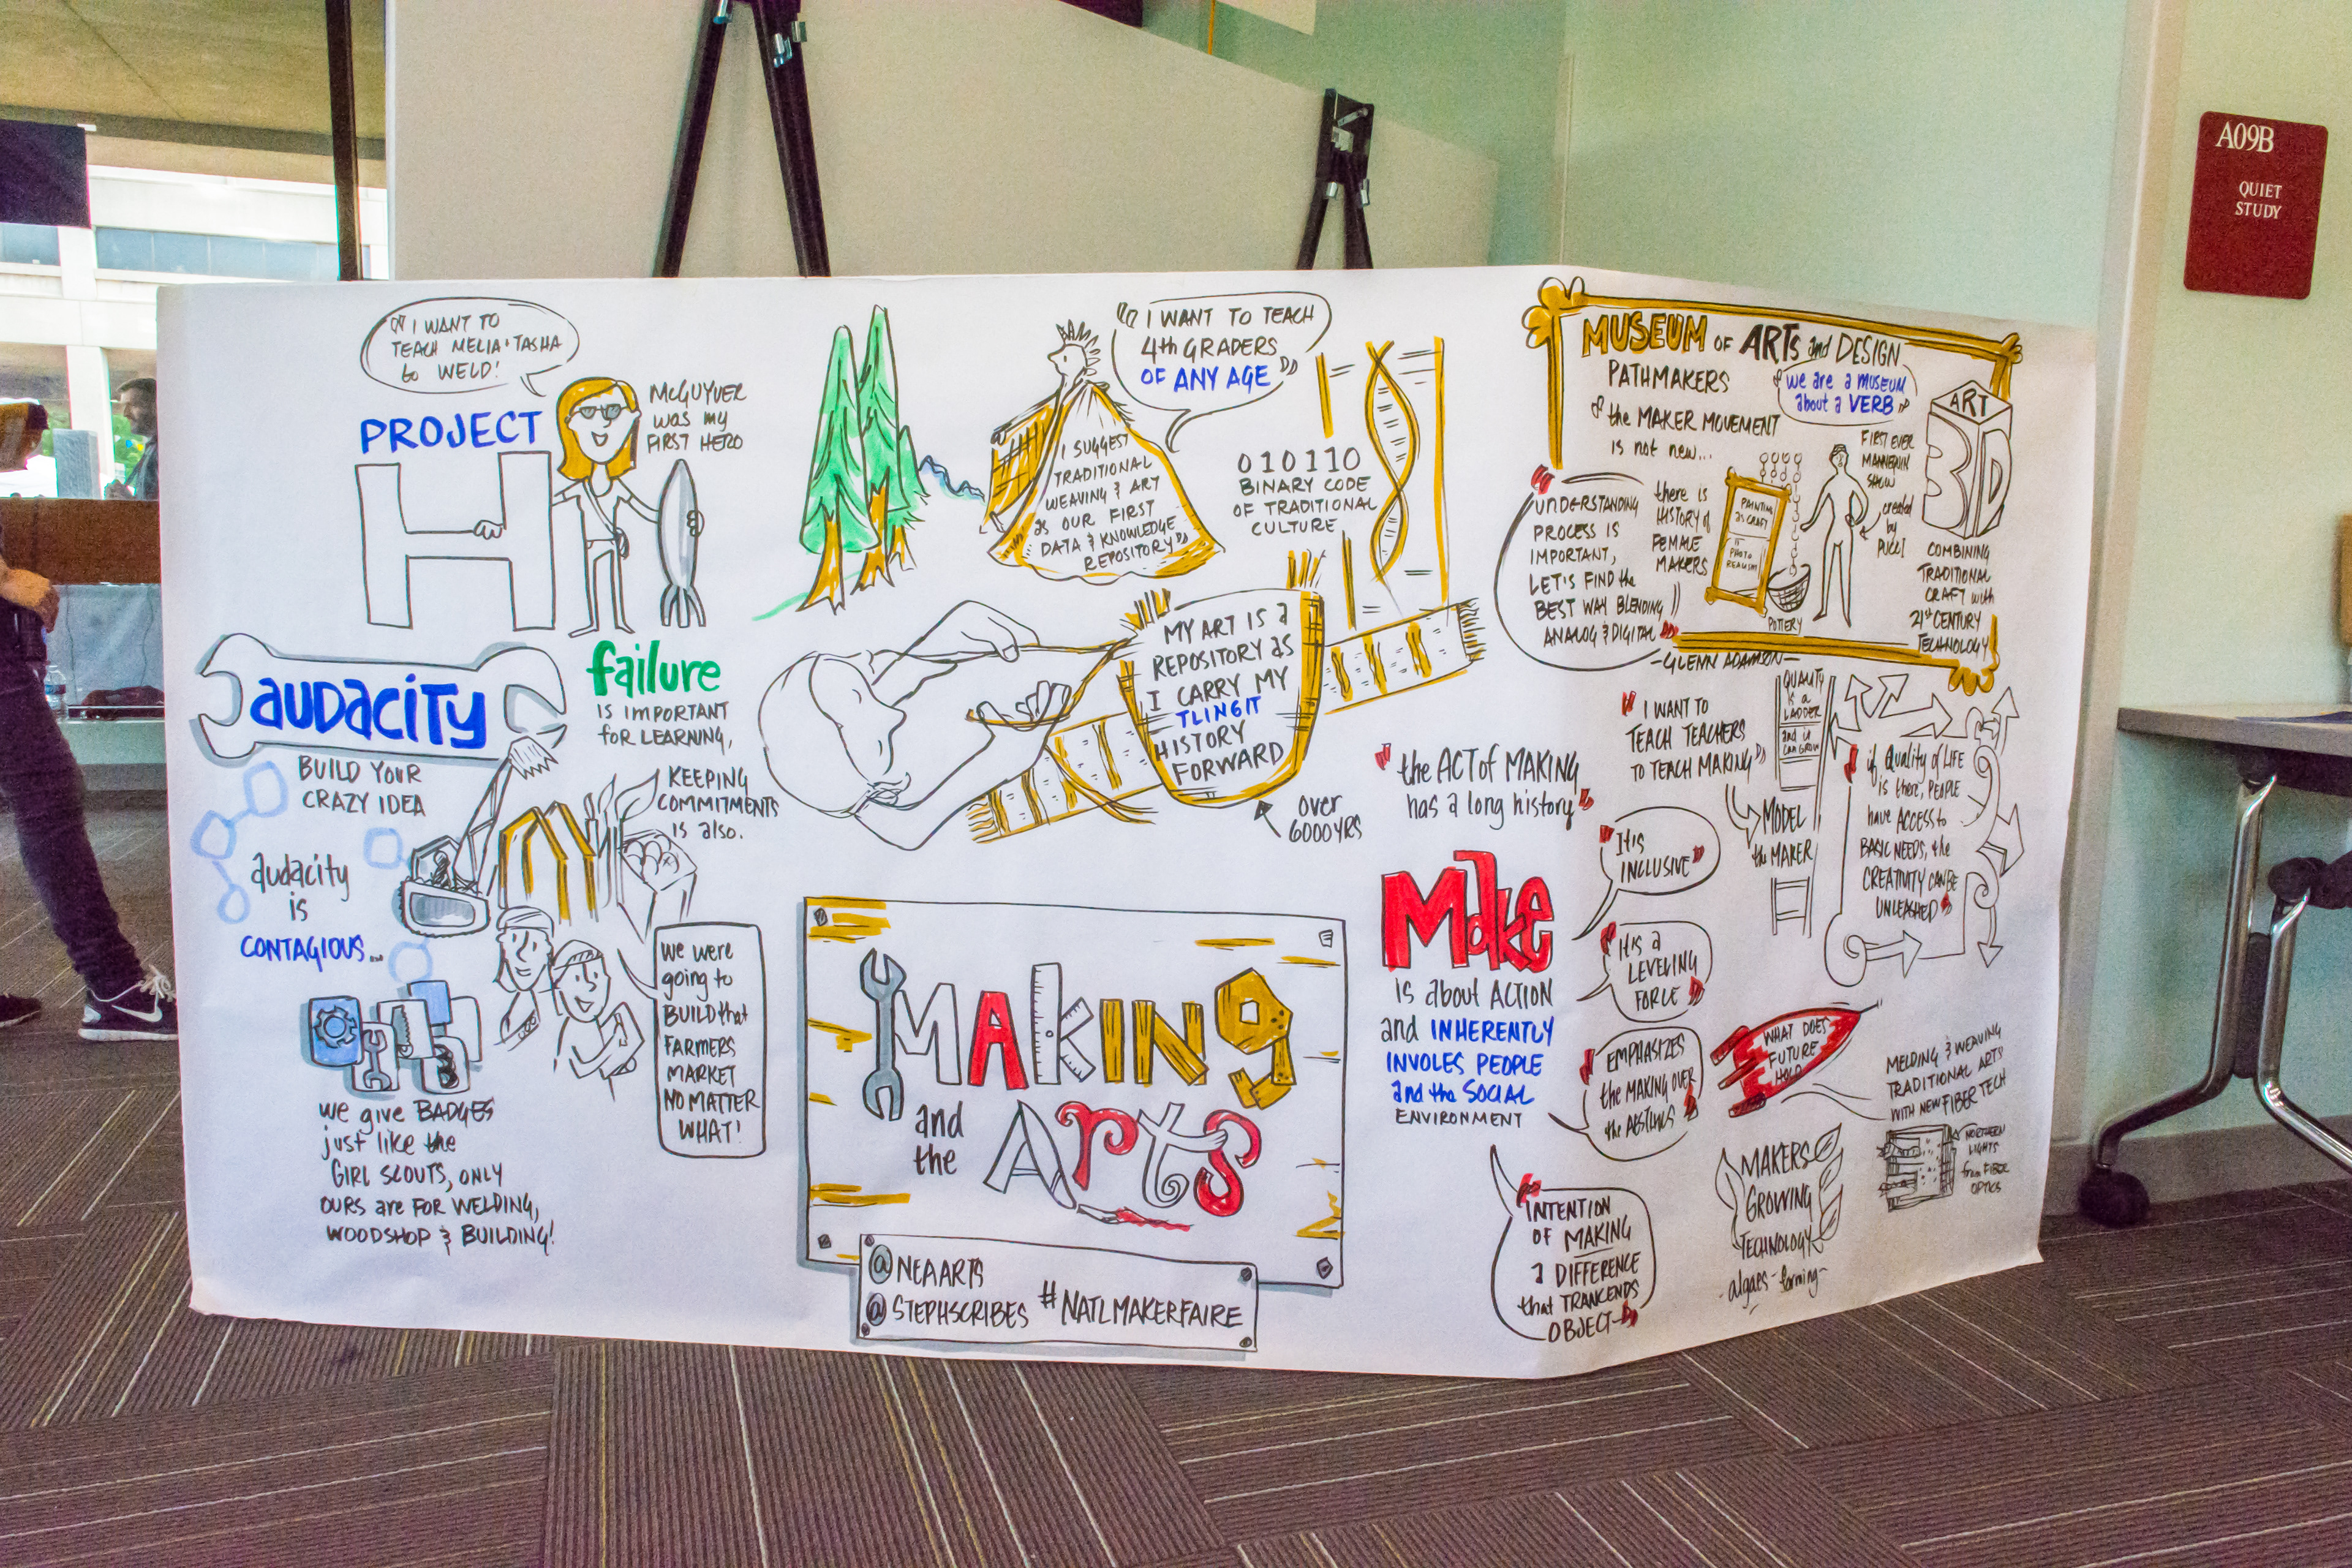 A09B
QUIET
STUDY
"I WANT TO
TEACH MELIA + TASHA
to WELD!
PROJECT
H
McGUYVER
was my
FIRST HERO
AUDACITY
BUILD YOUR
CRAZY IDEA
audacity
is
CONTAGIOUS...
failure
IS IMPORTANT
for LEARNING,
KEEPING
COMMITMENTS
is also.
we were
going to
BUILD that
FARMERS
MARKET
NO MATTER
WHAT!
we give BADGES
just like the
GIRL SCOUTS, ONLY
OURS are FOR WELDING,
WOODSHOP & BUILDING!
"I WANT TO TEACH
4th GRADERS
OF ANY AGE"
I SUGGEST
TRADITIONAL
WEAVING & ART
as OUR FIRST
DATA & KNOWLEDGE
REPOSITORY"
010110
BINARY CODE
OF TRADITIONAL
CULTURE
MY ART IS a
REPOSITORY as
I CARRY MY
TLINGIT
HISTORY
FORWARD
over
6000 YRS
MAKING
and
the
Arts
@NEAARTS
@STEPHSCRIBES #NATLMAKERFAIRE
MUSEUM OF ARTs and DESIGN
PATHMAKERS
"we are a MUSEUM
about a VERB"
& the MAKER MOVEMENT
is not new...
"UNDERSTANDING
PROCESS IS
IMPORTANT,
LET'S FIND the
BEST WAY BLENDING
ANALOG & DIGITAL"
-GLENN ADAMSON-
there is
HISTORY of
FEMALE
MAKERS
PAINTING
as CRAFT
PHOTO
REALISM
POTTERY
FIRST EVER
MANNEQUIN
SHOW
created
by
PUCCI
ART
3D
COMBINING
TRADITIONAL
CRAFT with
21st CENTURY
TECHNOLOGY
"the ACT of MAKING
has a long history"
"I WANT TO
TEACH TEACHERS
TO TEACH MAKING"
MODEL
the MAKER
QUALITY
is a
LADDER
and it
CAN GROW
"if QUALITY of LIFE
is there, PEOPLE
have ACCESS to
BASIC NEEDS, the
CREATIVITY CAN BE
UNLEASHED"
Make
is about ACTION
and INHERENTLY
INVOLES PEOPLE
and the SOCIAL
ENVIRONMENT
"It's
INCLUSIVE"
"It's a
LEVELING
FORCE"
"EMPHASIZES
the MAKING OVER
the
"INTENTION
OF MAKING
a DIFFERENCE
that TRANCENDS
OBJECT"
WHAT DOES
FUTURE
HOLD
MELDING & WEAVING
TRADITIONAL ARTS
WITH NEW FIBER TECH
NORTHERN
LIGHTS
from FIBER
OPTICS
MAKERS
GROWING
TECHNOLOGY
-algaes-farming-